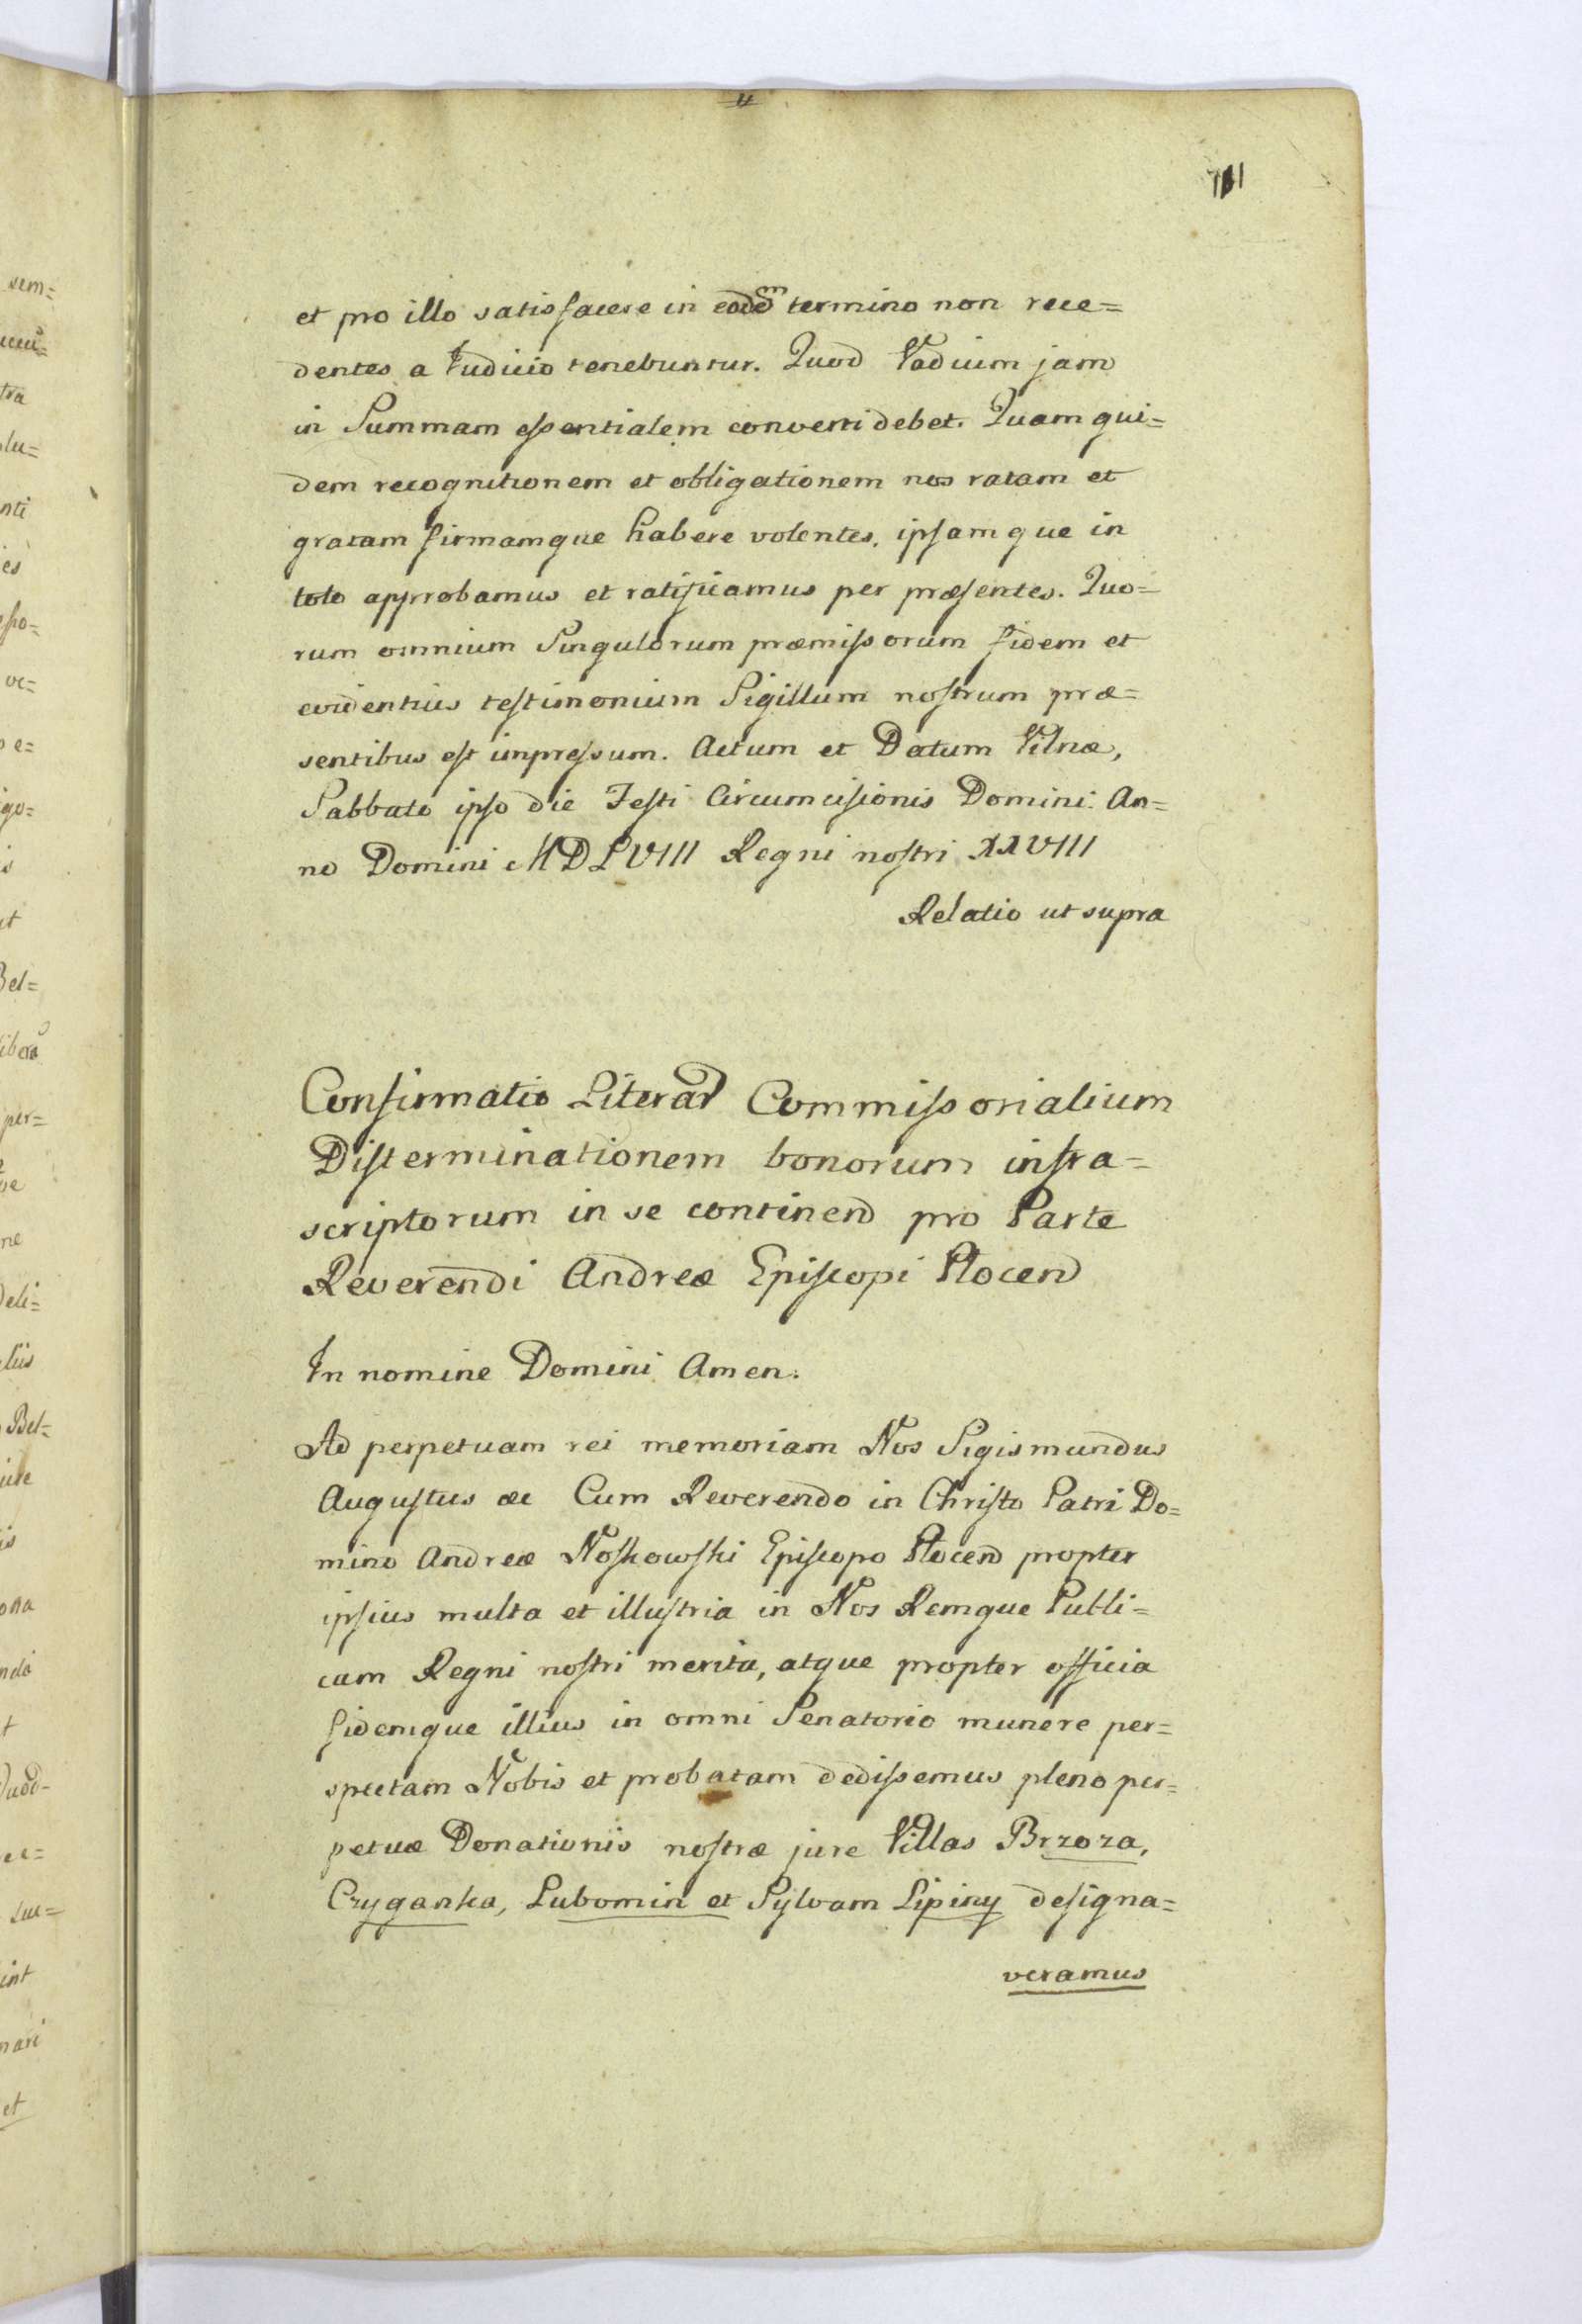 et pro illo satisfacere in eodem termino non rece=
dentes a Iudicio tenebuntur. Quod Vadium jam
in Summam eſsentialem converti debet. Quam qui=
dem recognitionem et obligationem nos ratam et
gratam firmamque habere volentes, ipſamque in
toto approbamus et ratificamus per præſentes. Quo=
rum omnium Singulorum præmiſsorum fidem et
evidentius teſtimonium Sigillum noſtrum præ=
sentibus eſt impreſsum. Actum et Datum Vilnæ,
Sabbato ipſo die Feſti Circumciſionis Domini An=
no Domini MDLVIII Regni noſtri XXVIII
Relatio ut supra
Confirmatio Literar Commiſsorialium
Diſterminationem bonorum infra=
scriptorum in se continen pro Parte
Reverendi Andreæ Epiſcopi Plocen
In nomine Domini Amen.
Ad perpetuam rei memoriam Nos Sigismundus
Auguſtus æc Cum Reverendo in Chriſto Patri Do=
mino Andreæ Noſkowſki Epiſcopo Plocen propter
ipſius multa et illuſtria in Nos Remque Publi=
cam Regni noſtri merita, atque propter officia
fidemque illius in omni Senatorio munere per=
spectam Nobis et probatam dediſsemus pleno per=
petuæ Donationis noſtræ jure Villas Brzoza,
Czyganka, Lubomin et Sylvam Lipiny deſigna=
veramus